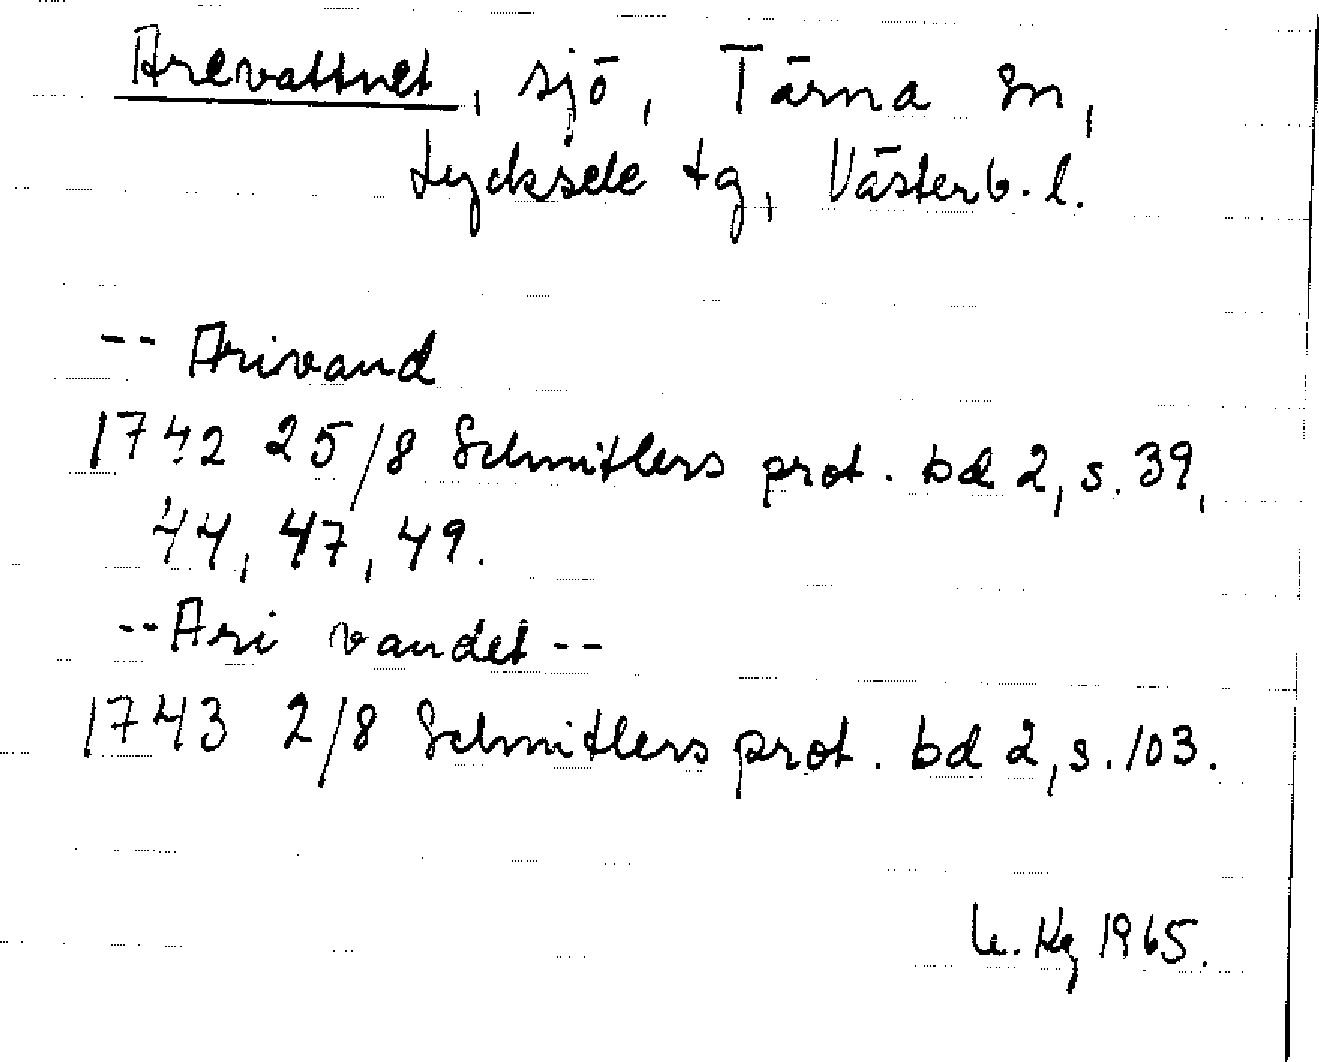 Arevattnet, sjö, Tärna sn,
Lycksele tg, Västerb. l.
-- Arivand
1742 25/8 Schnitlers prot. bd 2, s. 39,
44, 47, 49.
-- Ari vandet --
1743 2/8 Schnitlers prot. bd 2, s. 103.
Kg 1965.